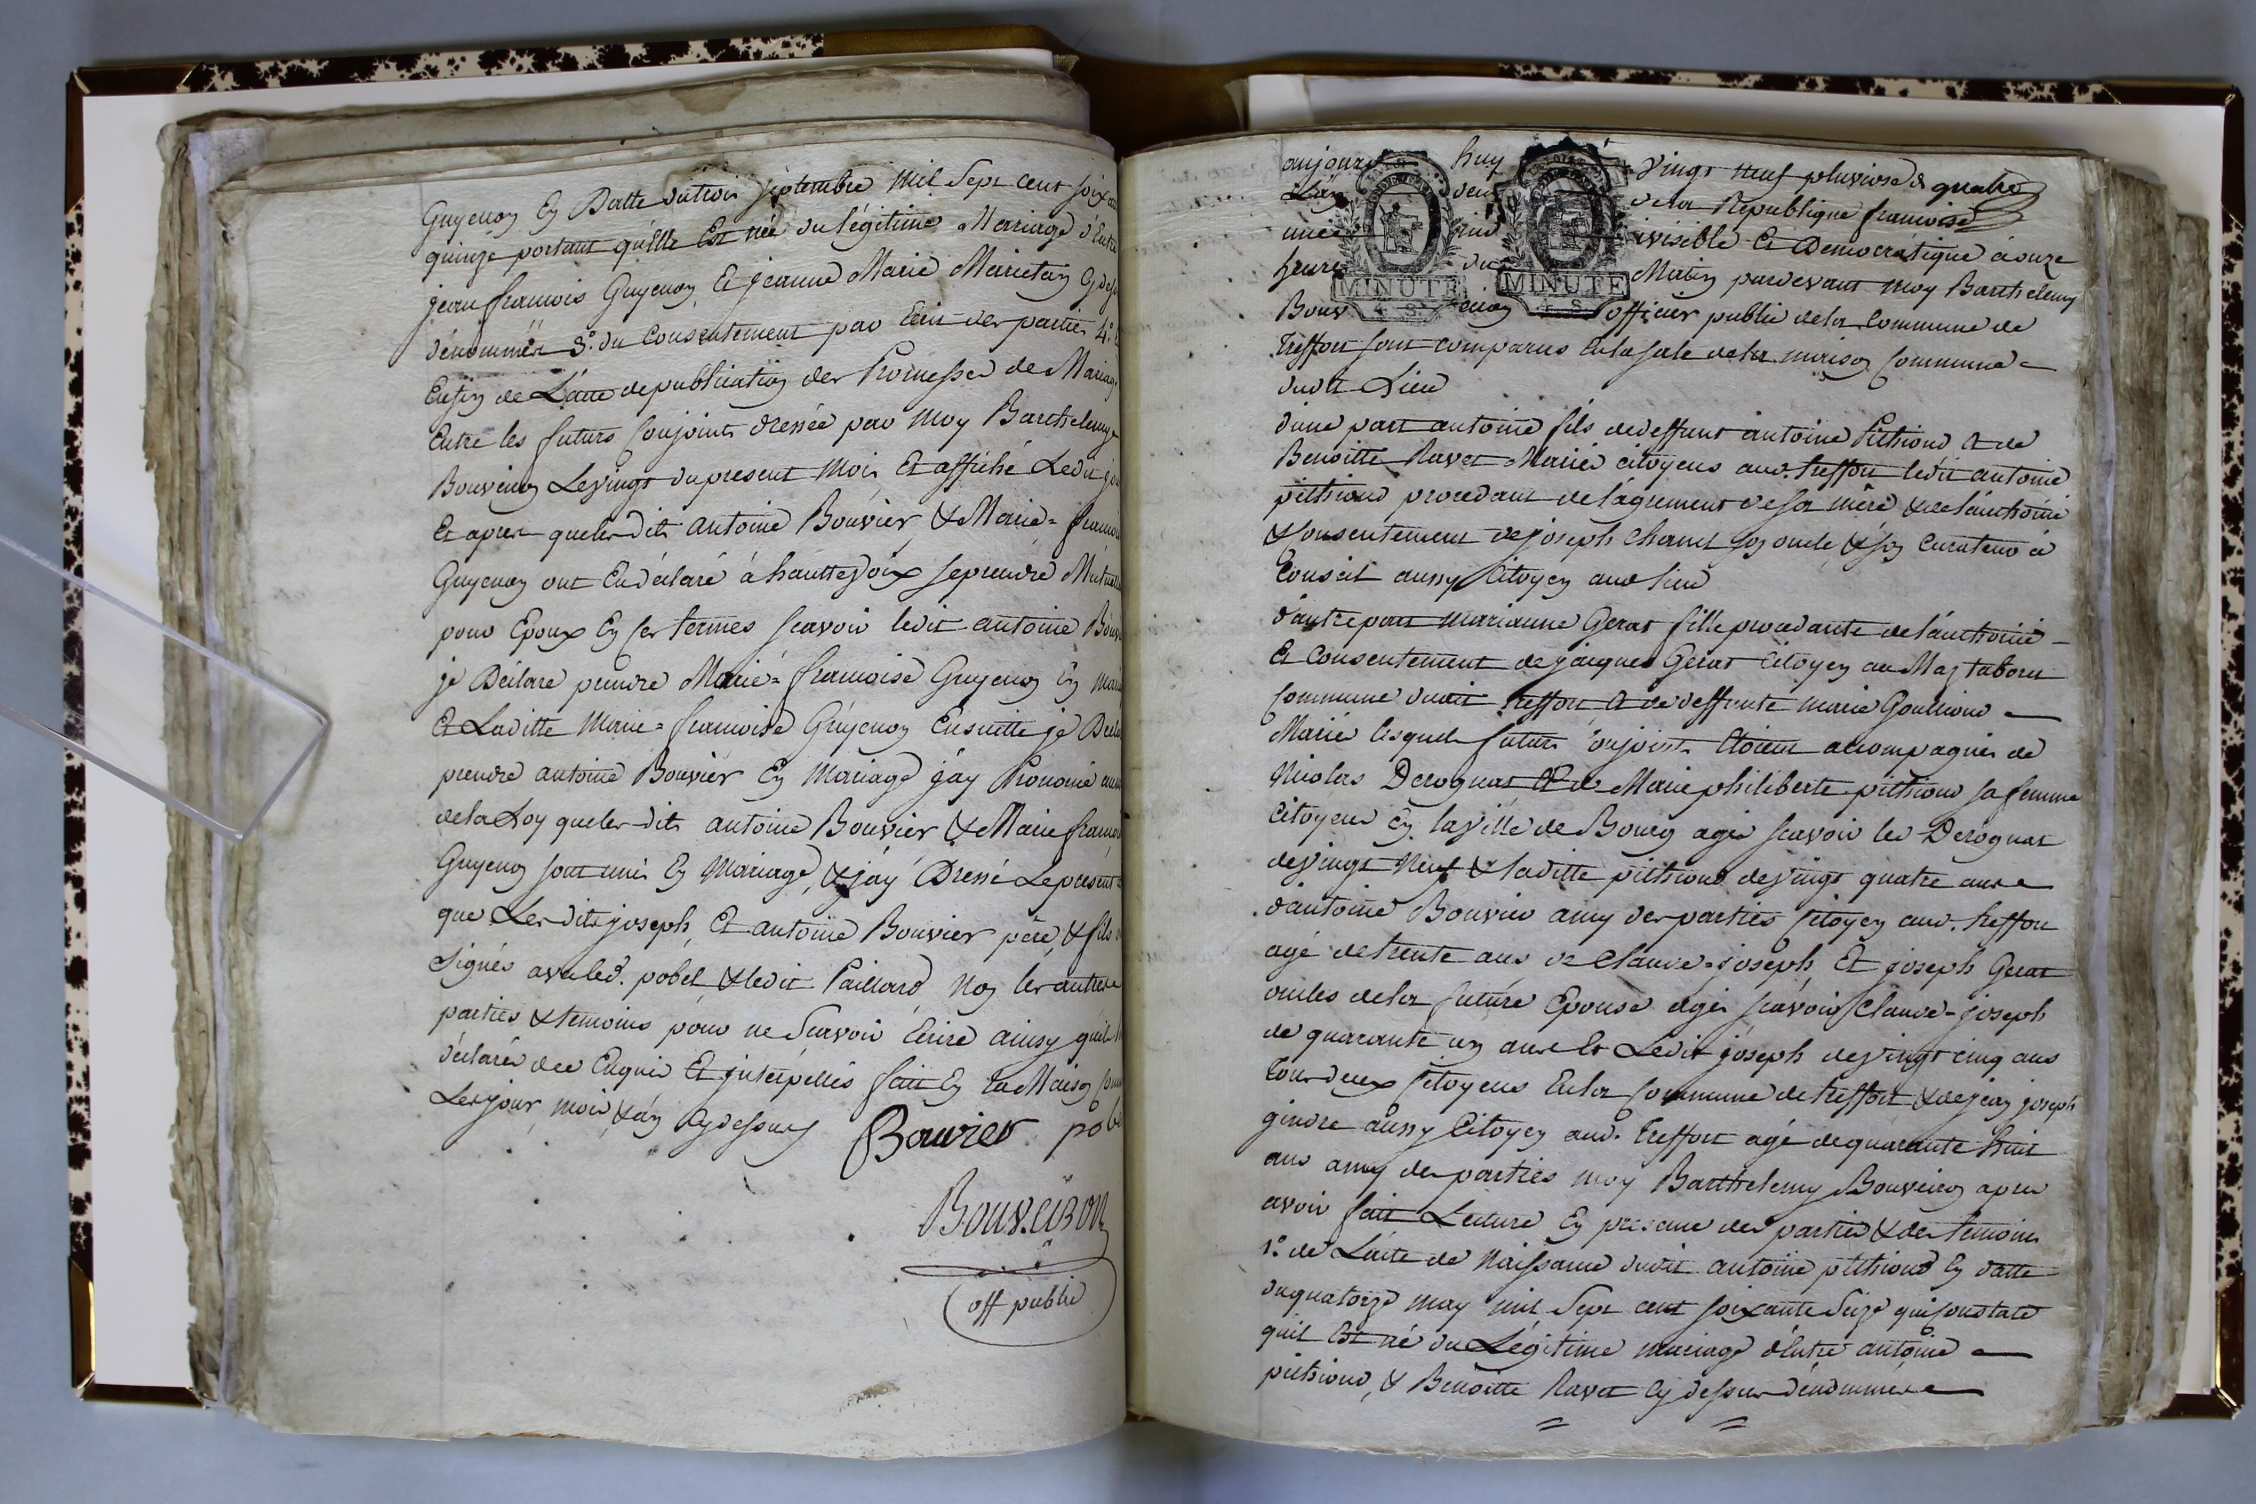 Guyenon En Datte du trois septembre mil Sept cent soix
quinze portant qu'elle Est née du légitime Marriage d'Entre
jean francois Guyenon Et jeanne Marie Marietan Cy dess
dénommés 3º. du Consentement par Ecrit des parties 4º.
Enfin de L'acte de publication des Promesses de Mariage
Entre les futurs conjoints dressée par moy Barthelemy
Bouveiron Le vingt du present mois Et affiché Ledit jour
Et apres que lesdits antoine Bouvier & Marie = francoise
Guyenon ont Endéclaré à hautte voix se prendre Mutuel
pour Epoux En ces termes scavoir ledit antoine Bouv
je Déclare prendre Marie = francoise Guyenon En mariage
Et Laditte Marie = francoise Guyenon Ensuitte je Decla
prendre antoine Bouvier En Mariage j'ay Prononcé au
de la Loy que lesdits antoine Bouvier & Marie francoise
Guyenon sont unis En Mariage, & j'ay Dressé Le present
que Lesdits joseph, Et antoine Bouvier pere & fils
signés avec led. pobel & ledit Paillard Non les autres
parties & temoins pour ne Scavoir Ecrire ainsy qu'ils
déclarés de ce Enquis Et interpellés fait En la Maison
Les jour, mois, & an Cy dessus
Bouvier pobel
Bouveiron
off public
aujourd huy vingt neuf pluviose & quatre
L'an de la Republique francoise
une ind ivisible Et Democratique à onze
heures du Matin pardevant moy Barthelemy
MINUTE MINUTE
Bouv eiron officier public de la Commune de
Treffort sont comparus En la sale de la maison Commune =
dudit Lieu
d'une part antoine fils de deffunt antoine Pithioud & de
Benoitte Ravet Mariés citoyens aud. treffort ledit antoine
pithioud procedant de l'agrement de sa mère & de l'authorité
& consentement de joseph Chanel son oncle & son Curateur à
Conseil aussy Citoyen aud. lieu
d'autre part Marianne Gerat fille procedante de l'authorité
Et Consentement de jacques Gerat Citoyen au Maz tabouret
Commune dudit treffort & de deffunte marie Goulioud
Mariés lesquels futurs conjoints Etoient accompagnés de
Nicolas Derognat & de Marie philiberte pithioud sa femme
Citoyens En la ville de Bourg agés scavoir led Derognat
de vingt Neuf & laditte pithioud de vingt quatre ans
d'antoine Bouvier amy des parties Citoyen aud. treffort
agé de trente ans de Claude = joseph, Et joseph Gerat
oncles de la future Epouse agés scavoir Claude = joseph
de quarante un ans Et Ledit joseph de vingt cinq ans
tous deux Citoyens En la Commune de treffort & de jean joseph
gindre aussy Citoyen aud. treffort agé de quarante huit
ans amy des parties moy Barthelemy Bouveiron apres
avoir fait Lecture En presence des parties & des temoins
1º. de L'acte de Naissance dudit antoine pithioud En datte
du quatorze may mil Sept cent soixante Seize qui constate
quil Est né du Légitime mariage d'Entre antoine
pithioud, & Benoitte Ravet Cy dessus dénommés